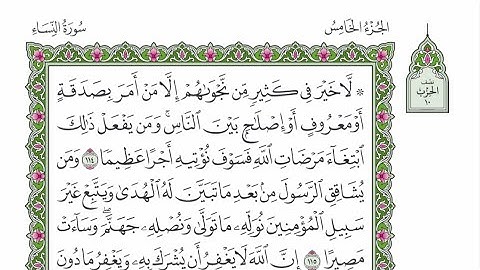 الجُزْءُ الخَامِسُ
سُورَةُ النِّسَاءِ
نصف
الحزب
١٠
۞ لَّا خَيْرَ فِي كَثِيرٍ مِّن نَّجْوَىٰهُمْ إِلَّا مَنْ أَمَرَ بِصَدَقَةٍ
أَوْ مَعْرُوفٍ أَوْ إِصْلَٰحٍۭ بَيْنَ ٱلنَّاسِۚ وَمَن يَفْعَلْ ذَٰلِكَ
ٱبْتِغَآءَ مَرْضَاتِ ٱللَّهِ فَسَوْفَ نُؤْتِيهِ أَجْرًا عَظِيمًا ١١٤ وَمَن
يُشَاقِقِ ٱلرَّسُولَ مِنۢ بَعْدِ مَا تَبَيَّنَ لَهُ ٱلْهُدَىٰ وَيَتَّبِعْ غَيْرَ
سَبِيلِ ٱلْمُؤْمِنِينَ نُوَلِّهِۦ مَا تَوَلَّىٰ وَنُصْلِهِۦ جَهَنَّمَۖ وَسَآءَتْ
مَصِيرًا ١١٥ إِنَّ ٱللَّهَ لَا يَغْفِرُ أَن يُشْرَكَ بِهِۦ وَيَغْفِرُ مَا دُونَ